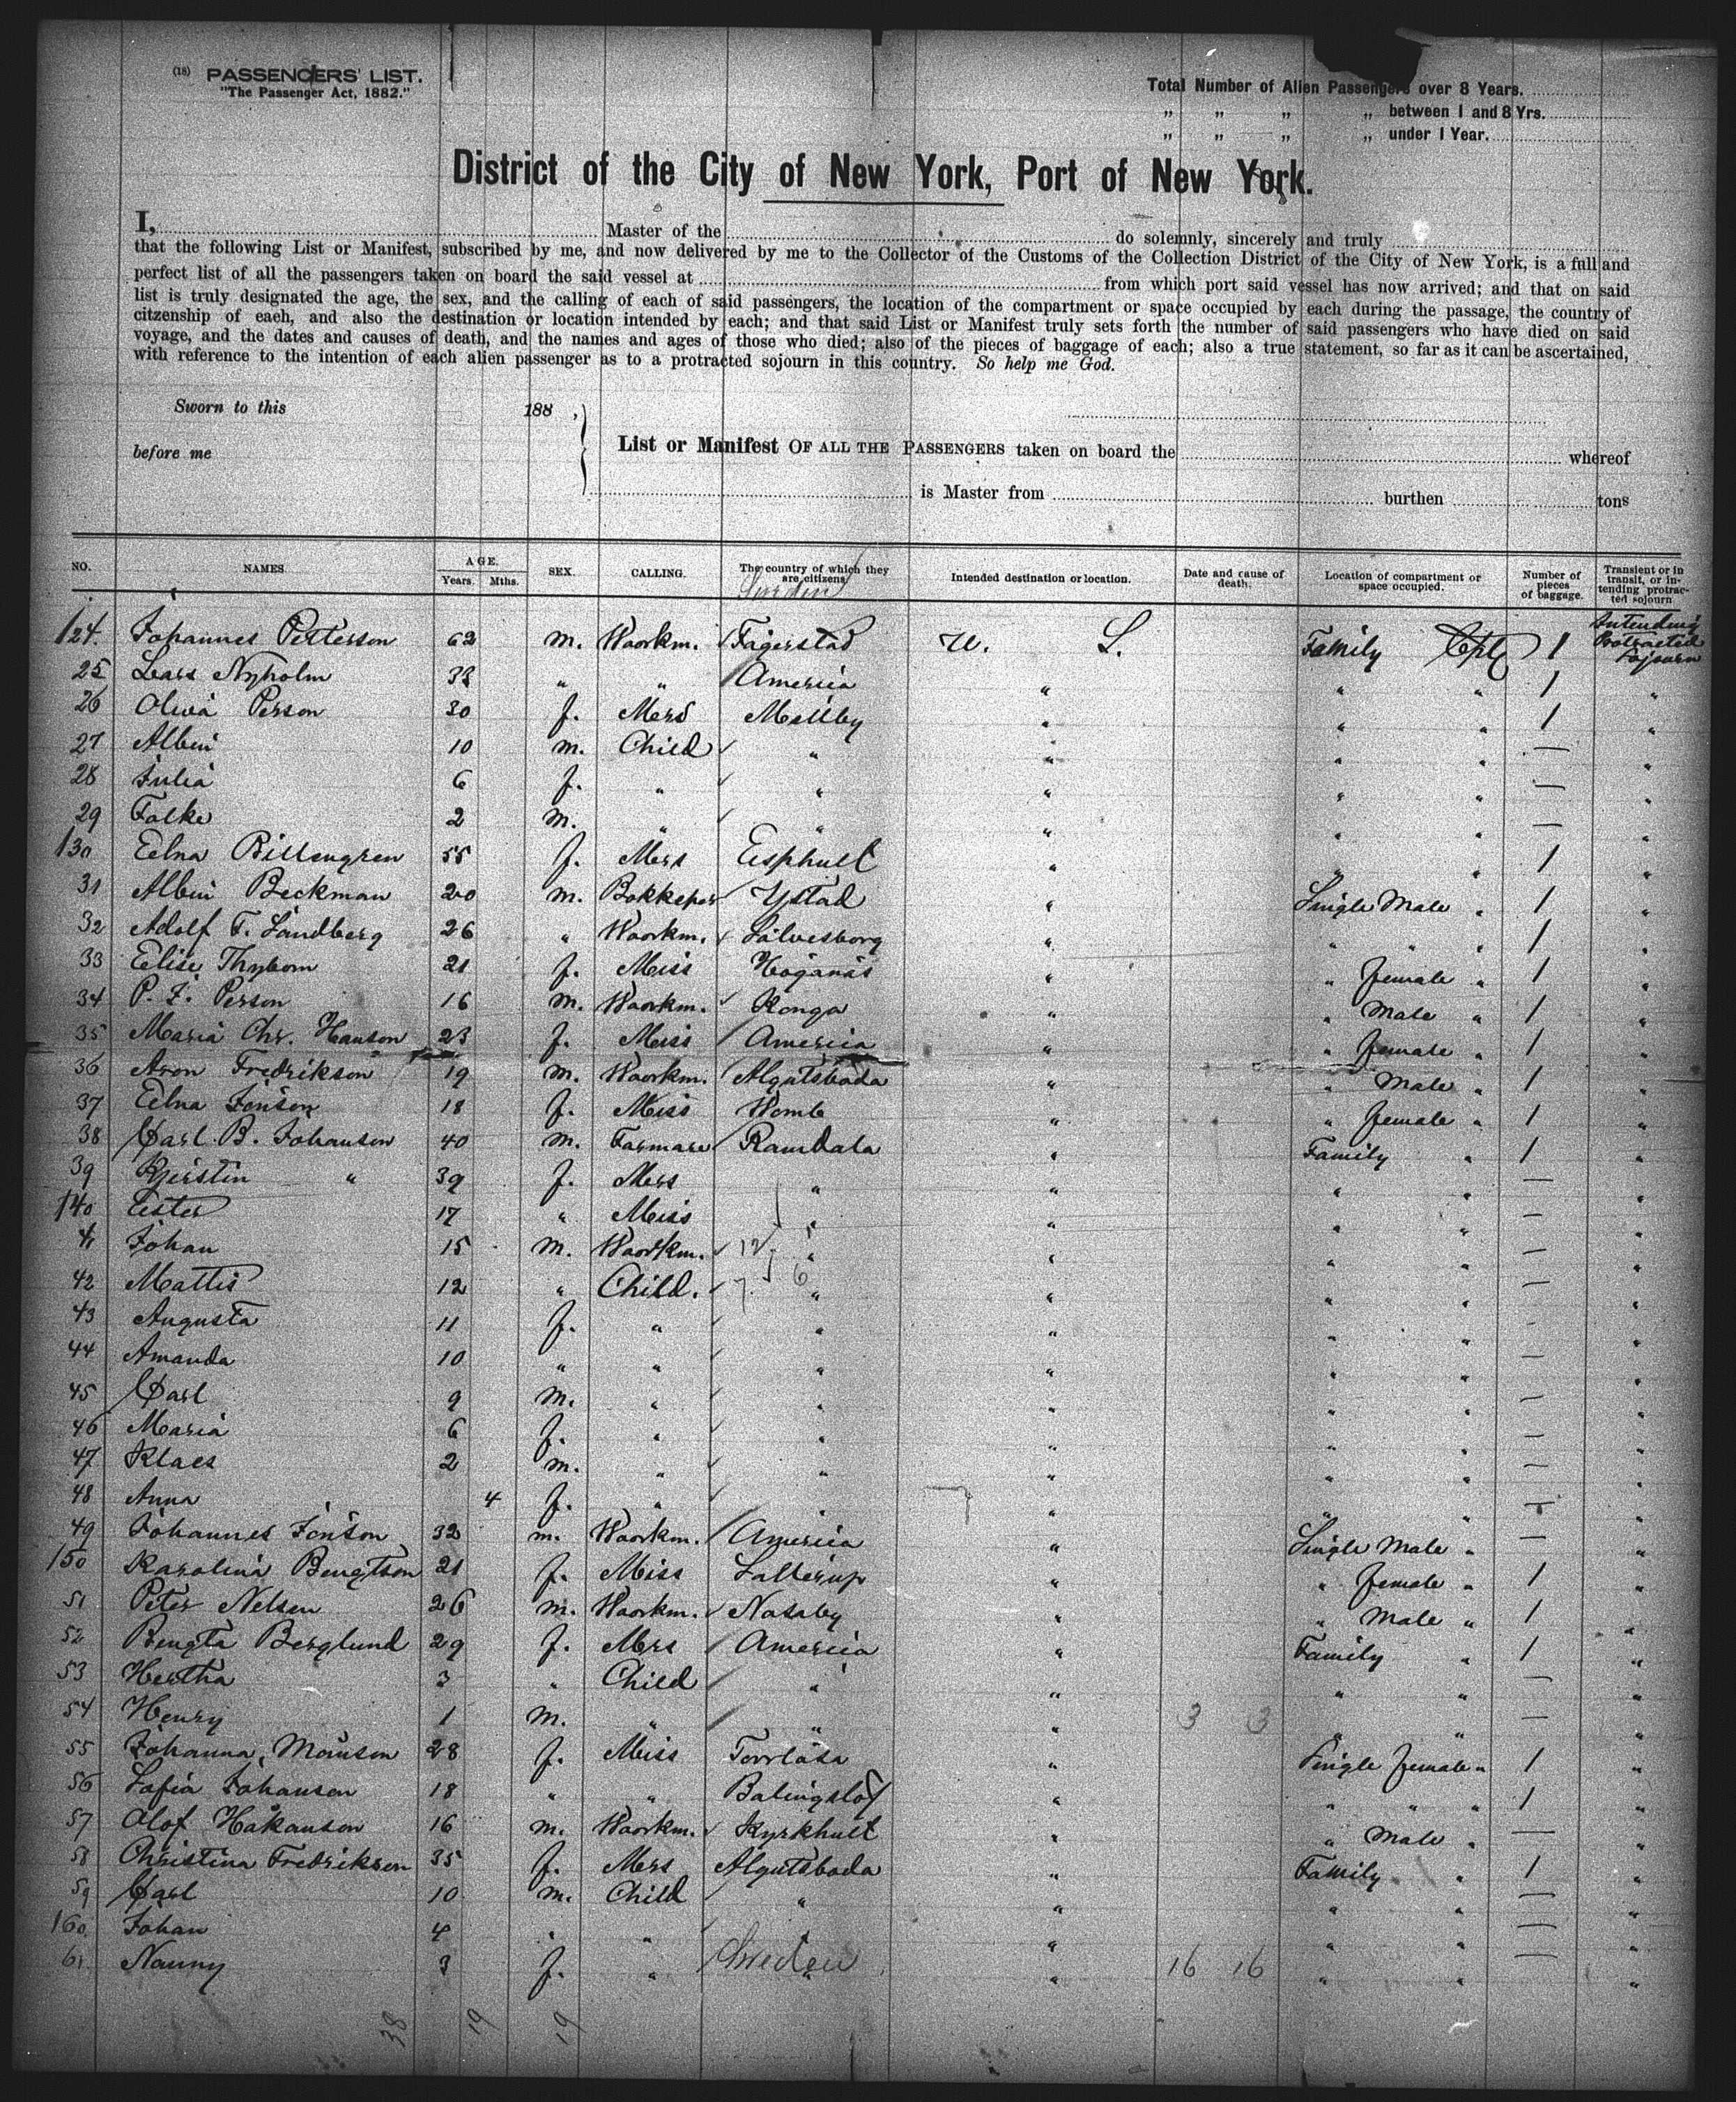 (18) PASSENGERS' LIST.
"The Passenger Act, 1882."
Total Number of Alien Passengers over 8 Years.
„ „ „ „ between 1 and 8 Yrs.
„ „ „ „ under 1 Year.
District of the City of New York, Port of New York.
I, Master of the do solemnly, sincerely and truly
that the following List or Manifest, subscribed by me, and now delivered by me to the Collector of the Customs of the Collection District of the City of New York, is a full and
perfect list of all the passengers taken on board the said vessel at from which port said vessel has now arrived; and that on said
list is truly designated the age, the sex, and the calling of each of said passengers, the location of the compartment or space occupied by each during the passage, the country of
citzenship of eaeh, and also the destination or location intended by each; and that said List or Manifest truly sets forth the number of said passengers who have died on said
voyage, and the dates and causes of death, and the names and ages of those who died; also of the pieces of baggage of each; also a true statement, so far as it can be ascertained,
with reference to the intention of each alien passenger as to a protracted sojourn in this country. So help me God.
Sworn to this 188 ,
before me
List or Manifest OF ALL THE PASSENGERS taken on board the whereof
is Master from burthen tons
NO. NAMES. AGE. Years. Mths. SEX. CALLING. The country of which they are citizens. Intended destination or location. Date and cause of death. Location of compartment or space occupied. Number of pieces of baggage. Transient or in transit, or intending protracted sojourn
Sweden
124. Johannes Petterson 62 m. Woorkm. Fagerstad U. S. Family Cpt 1 Intending Protracted Sojourn
25 Lars Nyholm 33 " " America " " " 1 "
26 Oliva Person 30 f. Mers Mellby " " " 1 "
27 Albin 10 m. Child " " " " — "
28 Julia 6 f. " " " " " — "
29 Falke 2 m. " " " " " — "
130 Elna Billengren 55 f. Mers Esphult " " " 1 "
31 Albin Beckman 20 m. Bokkeper Ystad " Single Male " 1 "
32 Adolf F. Sandberg 26 " Woorkm. Sölvesborg " " " " 1 "
33 Elise Thybom 21 f. Meiss Höganäs " " female " 1 "
34 P. J. Person 16 m. Woorkm. Konga " " Male " 1 "
35 Maria Chr. Hanson 23 f. Meiss America " " female " 1 "
36 Aron Fredrikson 19 m. Woorkm. Algutsboda " " Male " 1 "
37 Elna Jönson 18 f. Meiss Womb " " female " 1 "
38 Carl B. Johanson 40 m. Farmare Ramdala " Family " 1 "
39 Kjerstin " 39 f. Mers " " " " — "
140 Ester 17 " Meiss " " " " — "
41 Johan 15 m. Woorkm. 12. " " " " — "
42 Mattis 12 " Child. 7. 6 " " " " — "
43 Augusta 11 f. " " " " " — "
44 Amanda 10 " " " " " " — "
45 Carl 9 m. " " " " " — "
46 Maria 6 f. " " " " " — "
47 Klaes 2 m. " " " " " — "
48 Anna 4 f. " " " " " — "
49 Johannes Jonson 32 m. Woorkm. America " Single Male " — "
150 Karolina Bengtson 21 f. Miss " female " 1 "
51 Peter Nelson 26 m. Woorkm. Nosaby " " Male " 1 "
52 Bengta Berglund 29 f. Mers America " Family " 1 "
53 Hertha 3 " Child " " " " — "
54 Henry 1 m. " " " 3 3 " " — "
55 Johanna Månson 28 f. Meiss Torrlösa " Single female " 1 "
56 Sofia Johanson 18 " " Balingslöf " " " " 1 "
57 Olof Håkanson 16 m. Woorkm. Kyrkhult " " Male " — "
58 Christina Fredrikson 35 f. Mers Algutsboda " Family " 1 "
59 Carl 10 m. Child " " " " — "
160. Johan 4 " " " " " " — "
61. Nanny 3 f. " Sweden " " 16 16 " " — "
38 19 19